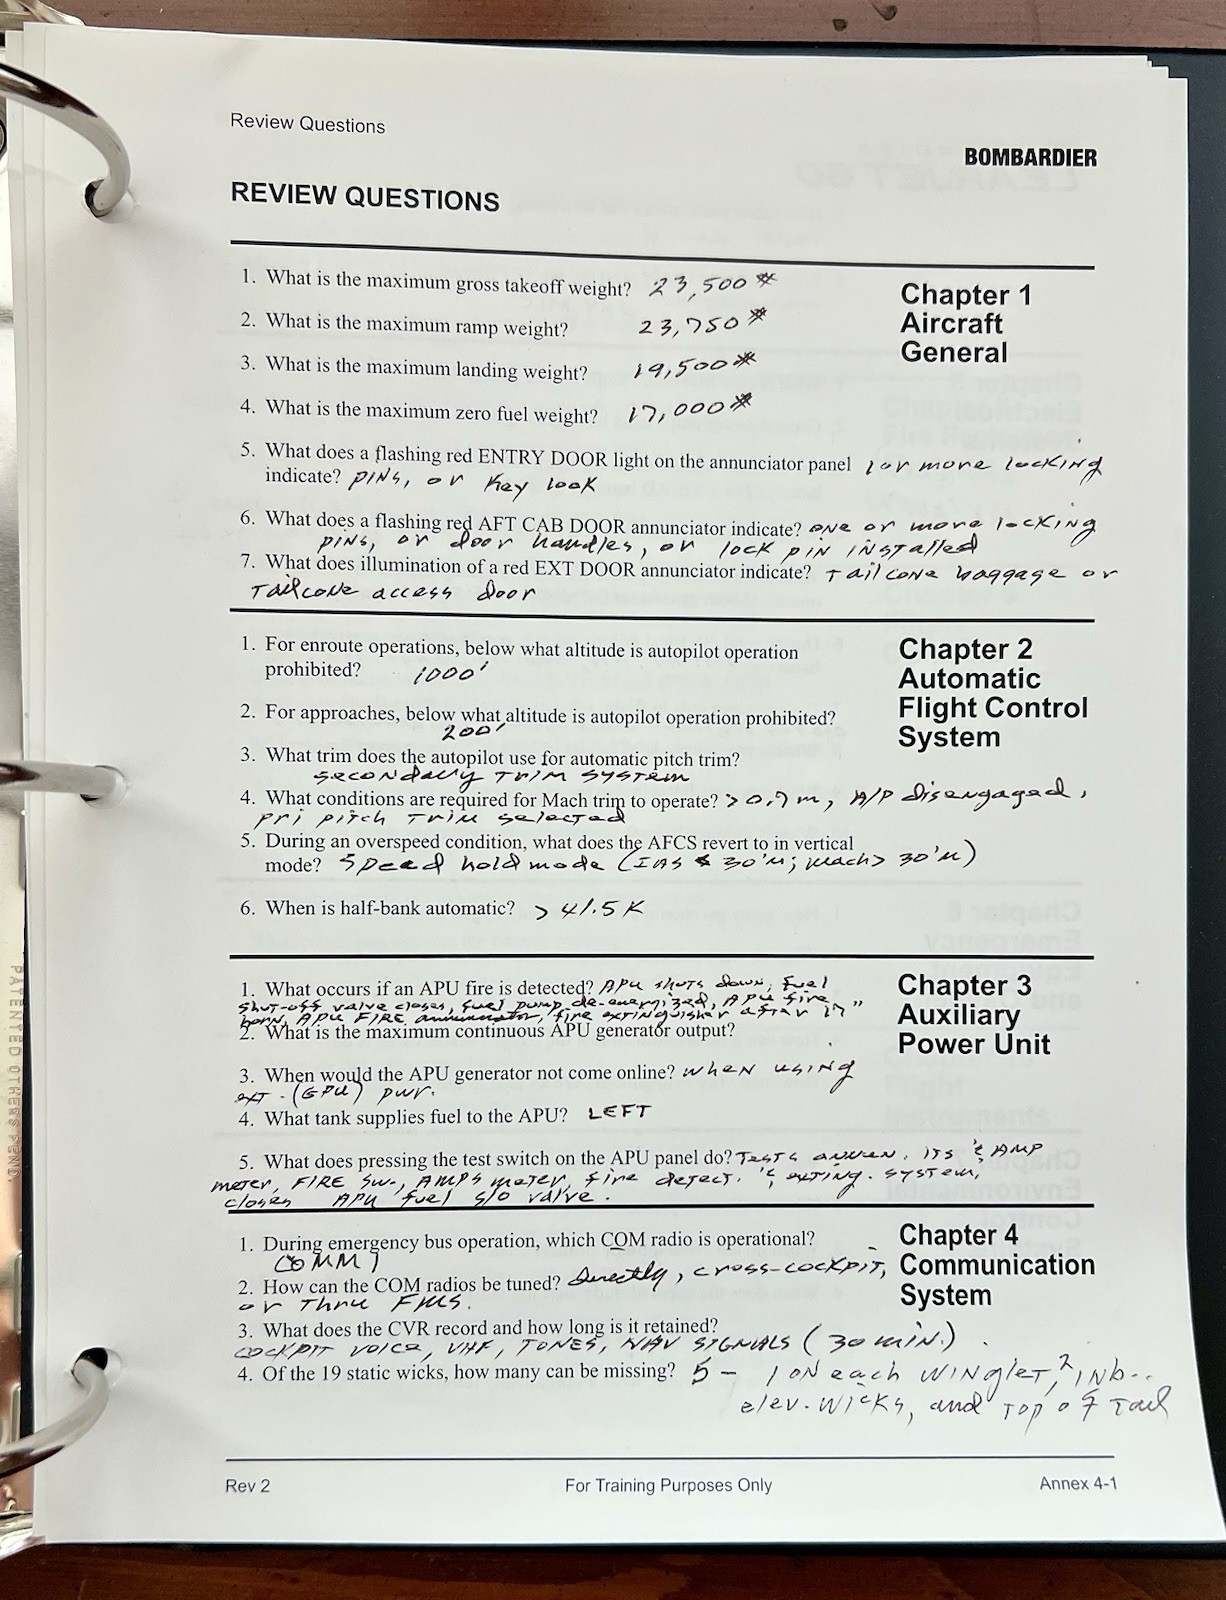 Review Questions
BOMBARDIER
REVIEW QUESTIONS
1. What is the maximum gross takeoff weight? 23,500#
2. What is the maximum ramp weight? 23,750#
3. What is the maximum landing weight? 19,500#
4. What is the maximum zero fuel weight? 17,000#
5. What does a flashing red ENTRY DOOR light on the annunciator panel 1 or more locking
indicate? pins, or key lock
6. What does a flashing red AFT CAB DOOR annunciator indicate? one or more locking
pins, or door handles, or lock pin installed
7. What does illumination of a red EXT DOOR annunciator indicate? Tailcone baggage or
Tailcone access door
Chapter 1
Aircraft
General
1. For enroute operations, below what altitude is autopilot operation
prohibited? 1000'
2. For approaches, below what altitude is autopilot operation prohibited?
200'
3. What trim does the autopilot use for automatic pitch trim?
secondary trim system
4. What conditions are required for Mach trim to operate? > 0.7 m, A/P disengaged,
pri pitch trim selected
5. During an overspeed condition, what does the AFCS revert to in vertical
mode? Speed hold mode (IAS 30'M; Mach > 30'M)
6. When is half-bank automatic? > 41.5 K
Chapter 2
Automatic
Flight Control
System
1. What occurs if an APU fire is detected? APU shuts down, fuel
shut-off valve closes, fuel pump de-energized, APU fire
horn, APU FIRE annunciator, fire extinguisher after
2. What is the maximum continuous APU generator output?
3. When would the APU generator not come online? when using
ext. (GPU) pwr.
4. What tank supplies fuel to the APU? LEFT
5. What does pressing the test switch on the APU panel do? Tests annun. ITS & AMP
meter, FIRE sw., AMPS meter, fire detect. & exting. system,
closes APU fuel s/o valve.
Chapter 3
Auxiliary
Power Unit
1. During emergency bus operation, which COM radio is operational?
COMM 1
2. How can the COM radios be tuned? Directly, cross-cockpit,
or thru FMS.
3. What does the CVR record and how long is it retained?
COCKPIT VOICE, VHF, TONES, NAV SIGNALS (30 min.)
4. Of the 19 static wicks, how many can be missing? 5 - 1 ON each WINGLET, 2 INb.
elev. wicks, and top of Tail
Chapter 4
Communication
System
Rev 2
For Training Purposes Only
Annex 4-1
PATENTED OTHERS PEND.